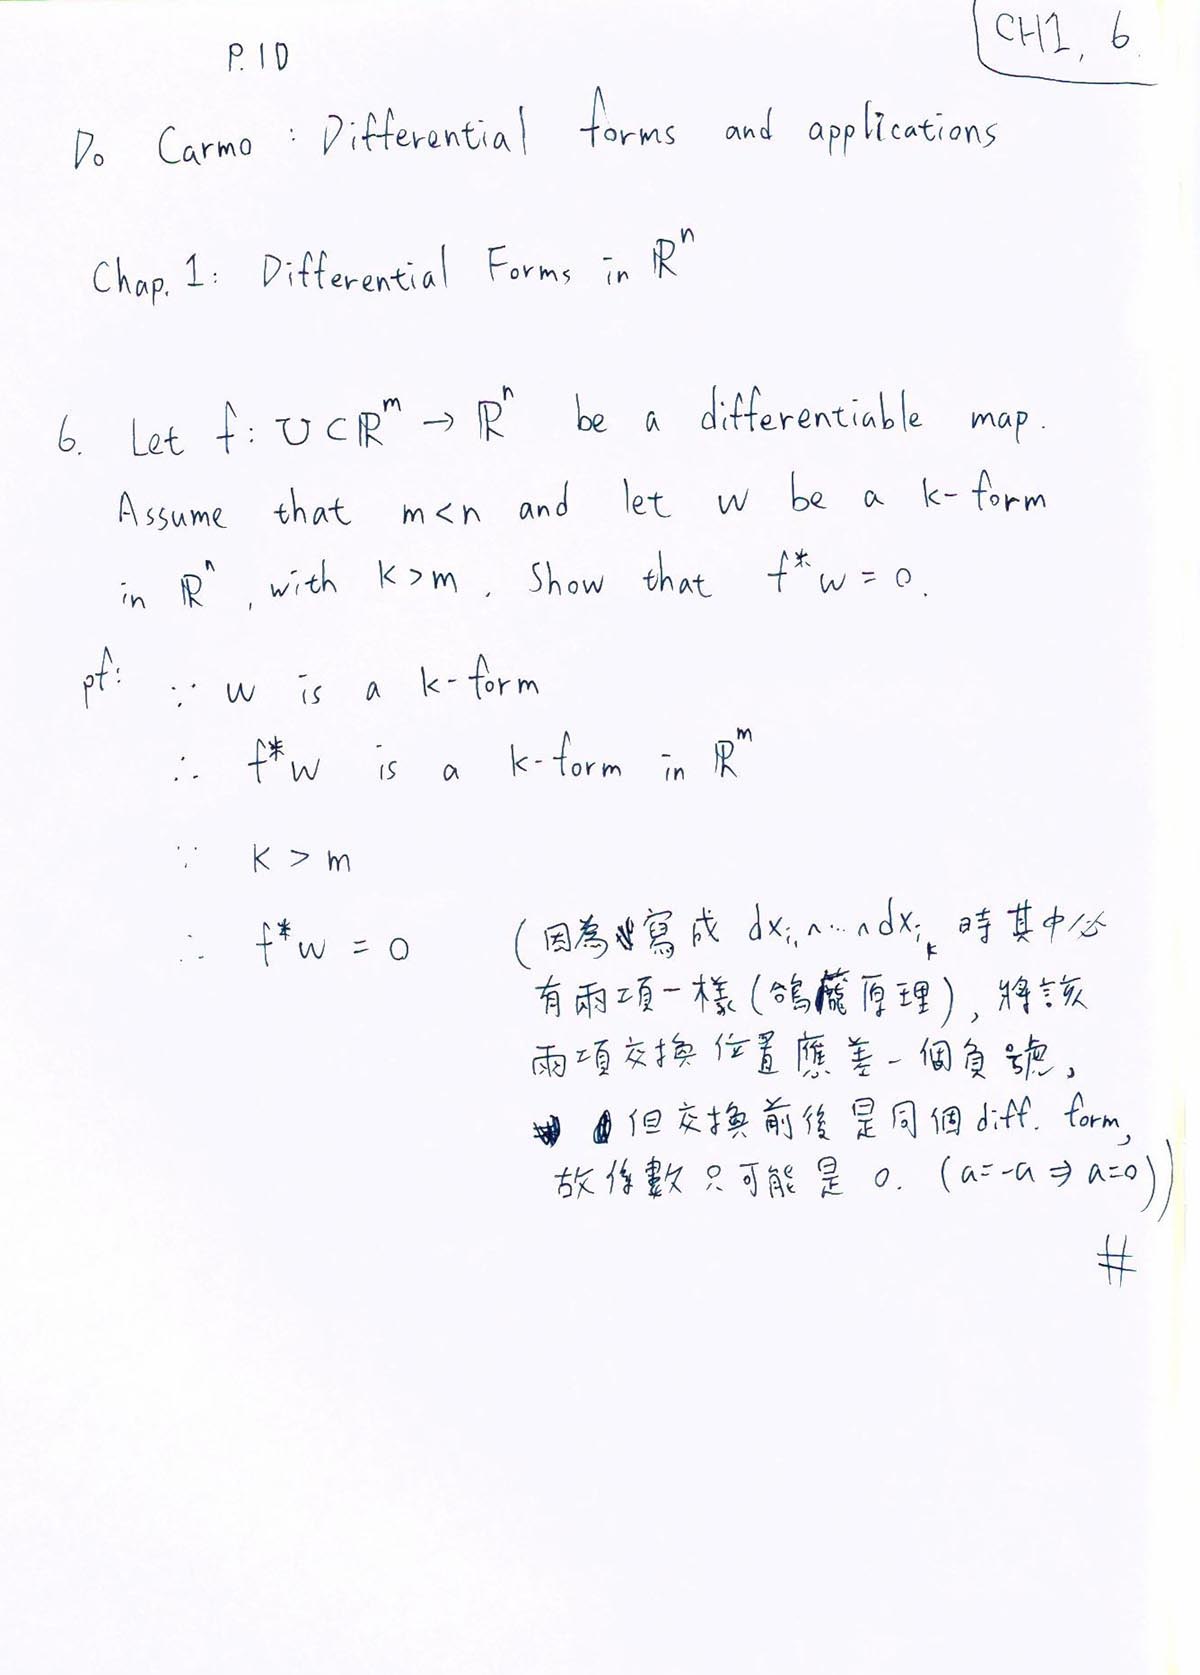 CH1, 6.
P.10
Do Carmo : Differential forms and applications
Chap. 1: Differential Forms in ℝⁿ
6. Let f: U⊂ℝᵐ → ℝⁿ be a differentiable map.
Assume that m<n and let w be a k-form
in ℝⁿ, with k>m. Show that f*w=0.
pf: ∵ w is a k-form
∴ f*w is a k-form in ℝᵐ
∵ k > m
∴ f*w = 0 (因為寫成 dx_{i_1}∧…∧dx_{i_k} 時其中必
有兩項一樣(鴿籠原理), 將該
兩項交換位置應差一個負號,
但交換前後是同個 diff. form,
故係數只可能是 0. (a=-a ⇒ a=0))
#